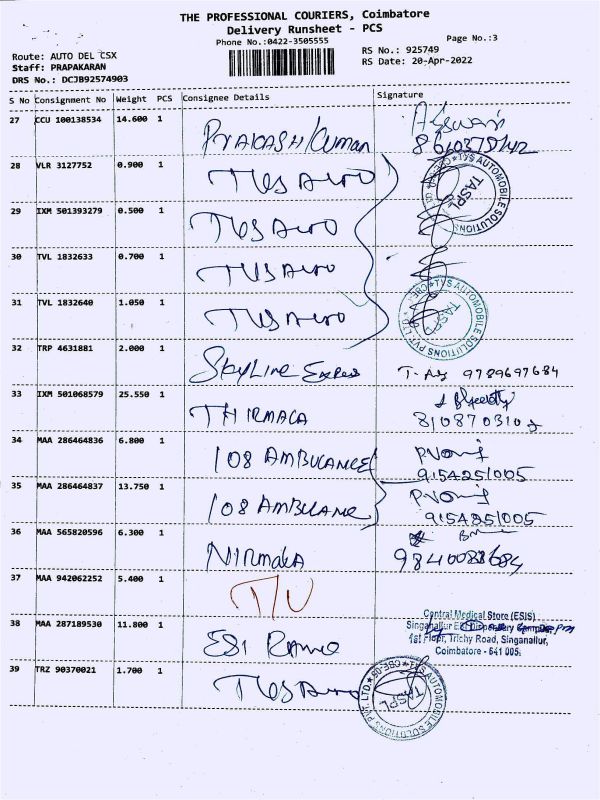 THE PROFESSIONAL COURIERS, Coimbatore
Delivery Runsheet - PCS
Phone No.:0422-3505555
Page No.:3
Route: AUTO DEL CSX
Staff: PRAPAKARAN
DRS No.: DCJB92574903
RS No.: 925749
RS Date: 20-Apr-2022
S No Consignment No Weight PCS Consignee Details Signature
27 CCU 100138534 14.600 1
PRAKASH Kuman
28 VLR 3127752 0.900 1
TVS Auto
29 IXM 501393279 0.500 1
TVS Auto
30 TVL 1832633 0.700 1
TVS Auto
31 TVL 1832640 1.050 1
TVS Auto
TVS AUTOMOBILE SOLUTIONS PVT. LTD. CBE-08
TASPL
TVS AUTOMOBILE SOLUTIONS PVT. LTD. CBE-08
TASPL
32 TRP 4631881 2.000 1
SkyLine Express 9789697684
33 IXM 501068579 25.550 1
THIRMACA
34 MAA 286464836 6.800 1
108 AMBULANCE
9154251005
35 MAA 286464837 13.750 1
108 AMBULANCE
9154251005
36 MAA 565820596 6.300 1
NIRMALA
37 MAA 942062252 5.400 1
38 MAA 287189530 11.800 1
ESI
Central Medical Store (ESIS)
Singanallur ESI Dispensary
1st Floor, Trichy Road, Singanallur,
Coimbatore - 641 005.
39 TRZ 90370021 1.700 1
TVS Auto
TVS AUTOMOBILE SOLUTIONS PVT. LTD. CBE-08
TASPL